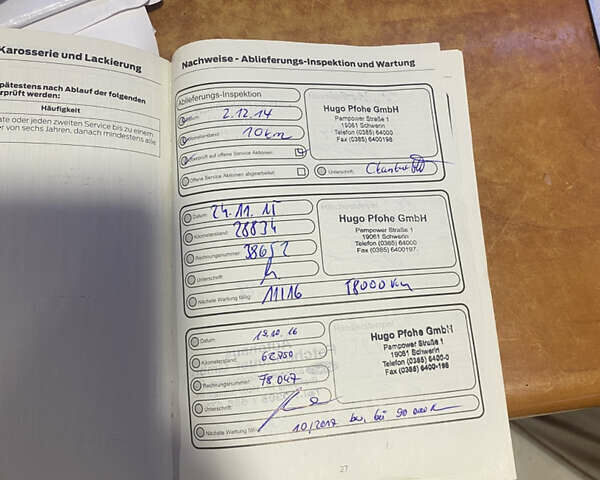 Karosserie und Lackierung
pätestens nach Ablauf der folgenden
rprüft werden:
Häufigkeit
ate oder jeden zweiten Service bis zu einem
r von sechs Jahren, danach mindestens alle
Nachweise - Ablieferungs-Inspektion und Wartung
Ablieferungs-Inspektion
Datum: 2.12.14
Kilometerstand: 10km
Überprüft auf offene Service Aktionen:
Offene Service Aktionen abgearbeitet:
Hugo Pfohe GmbH
Pampower Straße 1
19061 Schwerin
Telefon (0385) 64000
Fax (0385) 6400198
Unterschrift:
Datum: 24.11.15
Kilometerstand: 28834
Rechnungsnummer: 38652
Unterschrift:
Nächste Wartung fällig: 11/16 58000 km
Hugo Pfohe GmbH
Pampower Straße 1
19061 Schwerin
Telefon (0385) 64000
Fax (0385) 6400197
Datum: 19.10.16
Kilometerstand: 62750
Rechnungsnummer: 78047
Unterschrift:
Nächste Wartung fällig: 10/2017
Hugo Pfohe GmbH
Pampower Straße 1
19061 Schwerin
Telefon (0385) 6400-0
Fax (0385) 6400-198
27